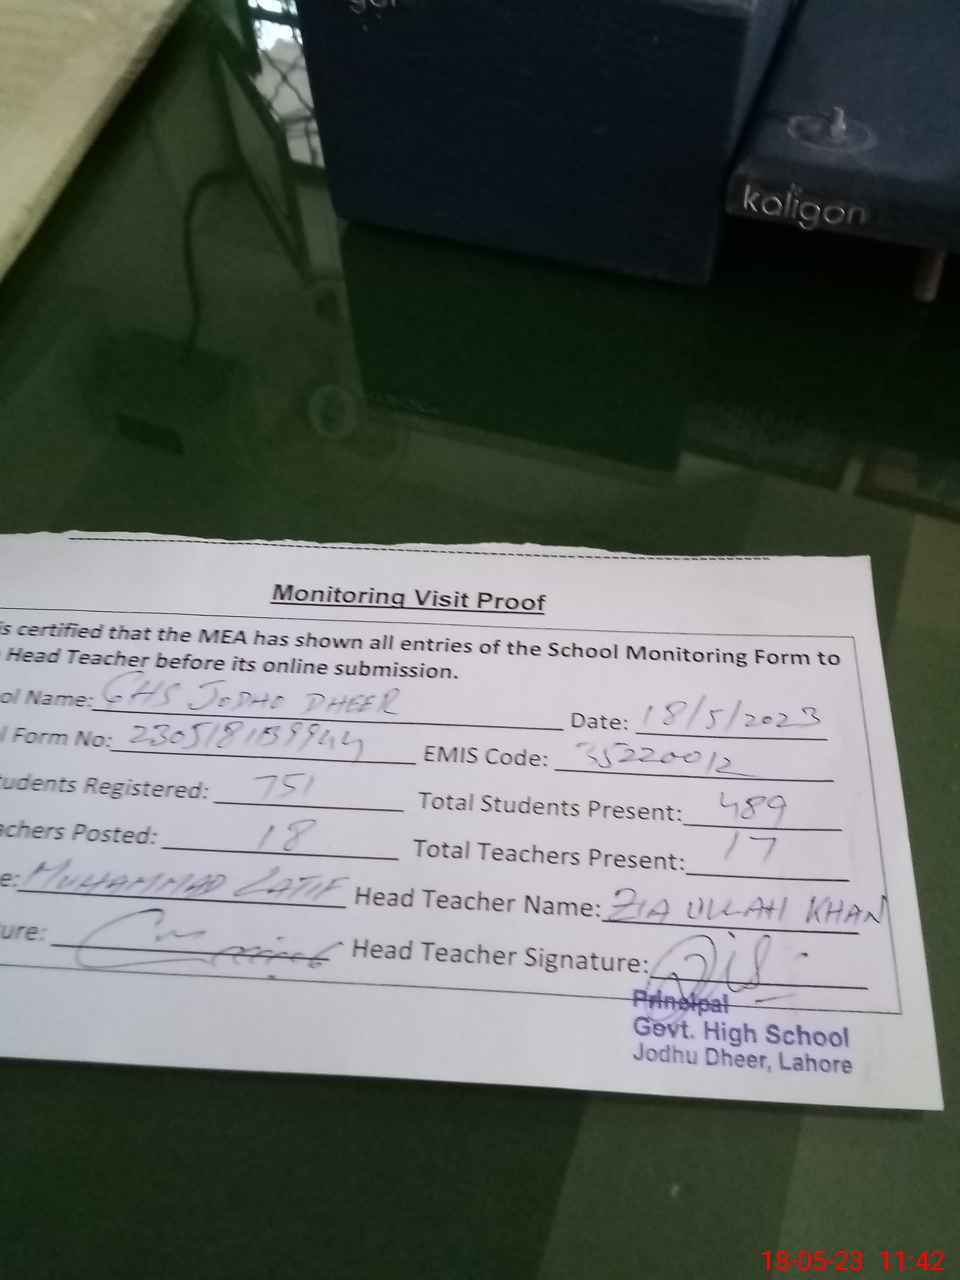 kaligon
Monitoring Visit Proof
is certified that the MEA has shown all entries of the School Monitoring Form to
Head Teacher before its online submission.
ol Name: GHS JODHO DHEER Date: 18/5/2023
l Form No: EMIS Code: 35220012
udents Registered: 751 Total Students Present: 489
achers Posted: 18 Total Teachers Present: 17
e: MUHAMMAD LATIF Head Teacher Name: ZIA ULLAH KHAN
ure: Head Teacher Signature:
Principal
Govt. High School
Jodhu Dheer, Lahore
18-05-23 11:42